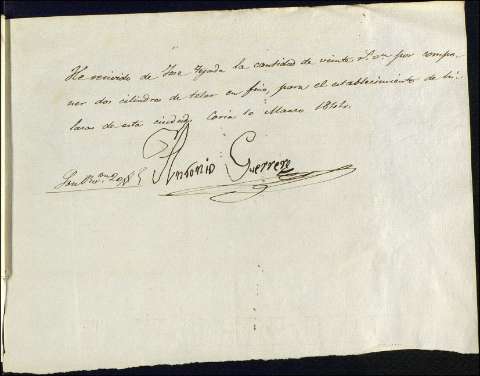 He recivido de Jose Tejada la cantidad de veinte rs. vn. por compo-
ner dos cilindros de telar en fino, para el establecimiento de hi-
lazas de esta ciudad. Coria 10 Marzo 1844.
Son Rs. vn. 20 rs. Antonio Guerrero